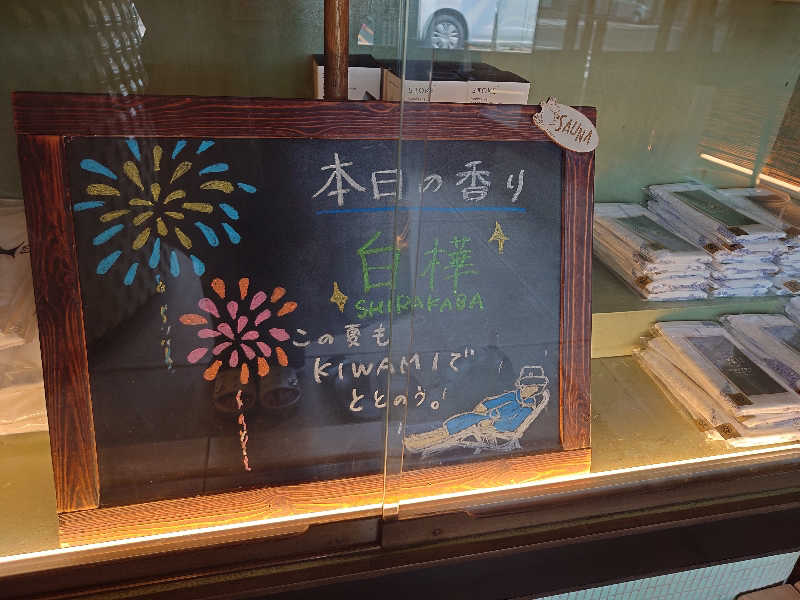 STOKE
SAUNA
本日の香り
白樺
SHIRAKABA
この夏も
KIWAMIで
ととのう。